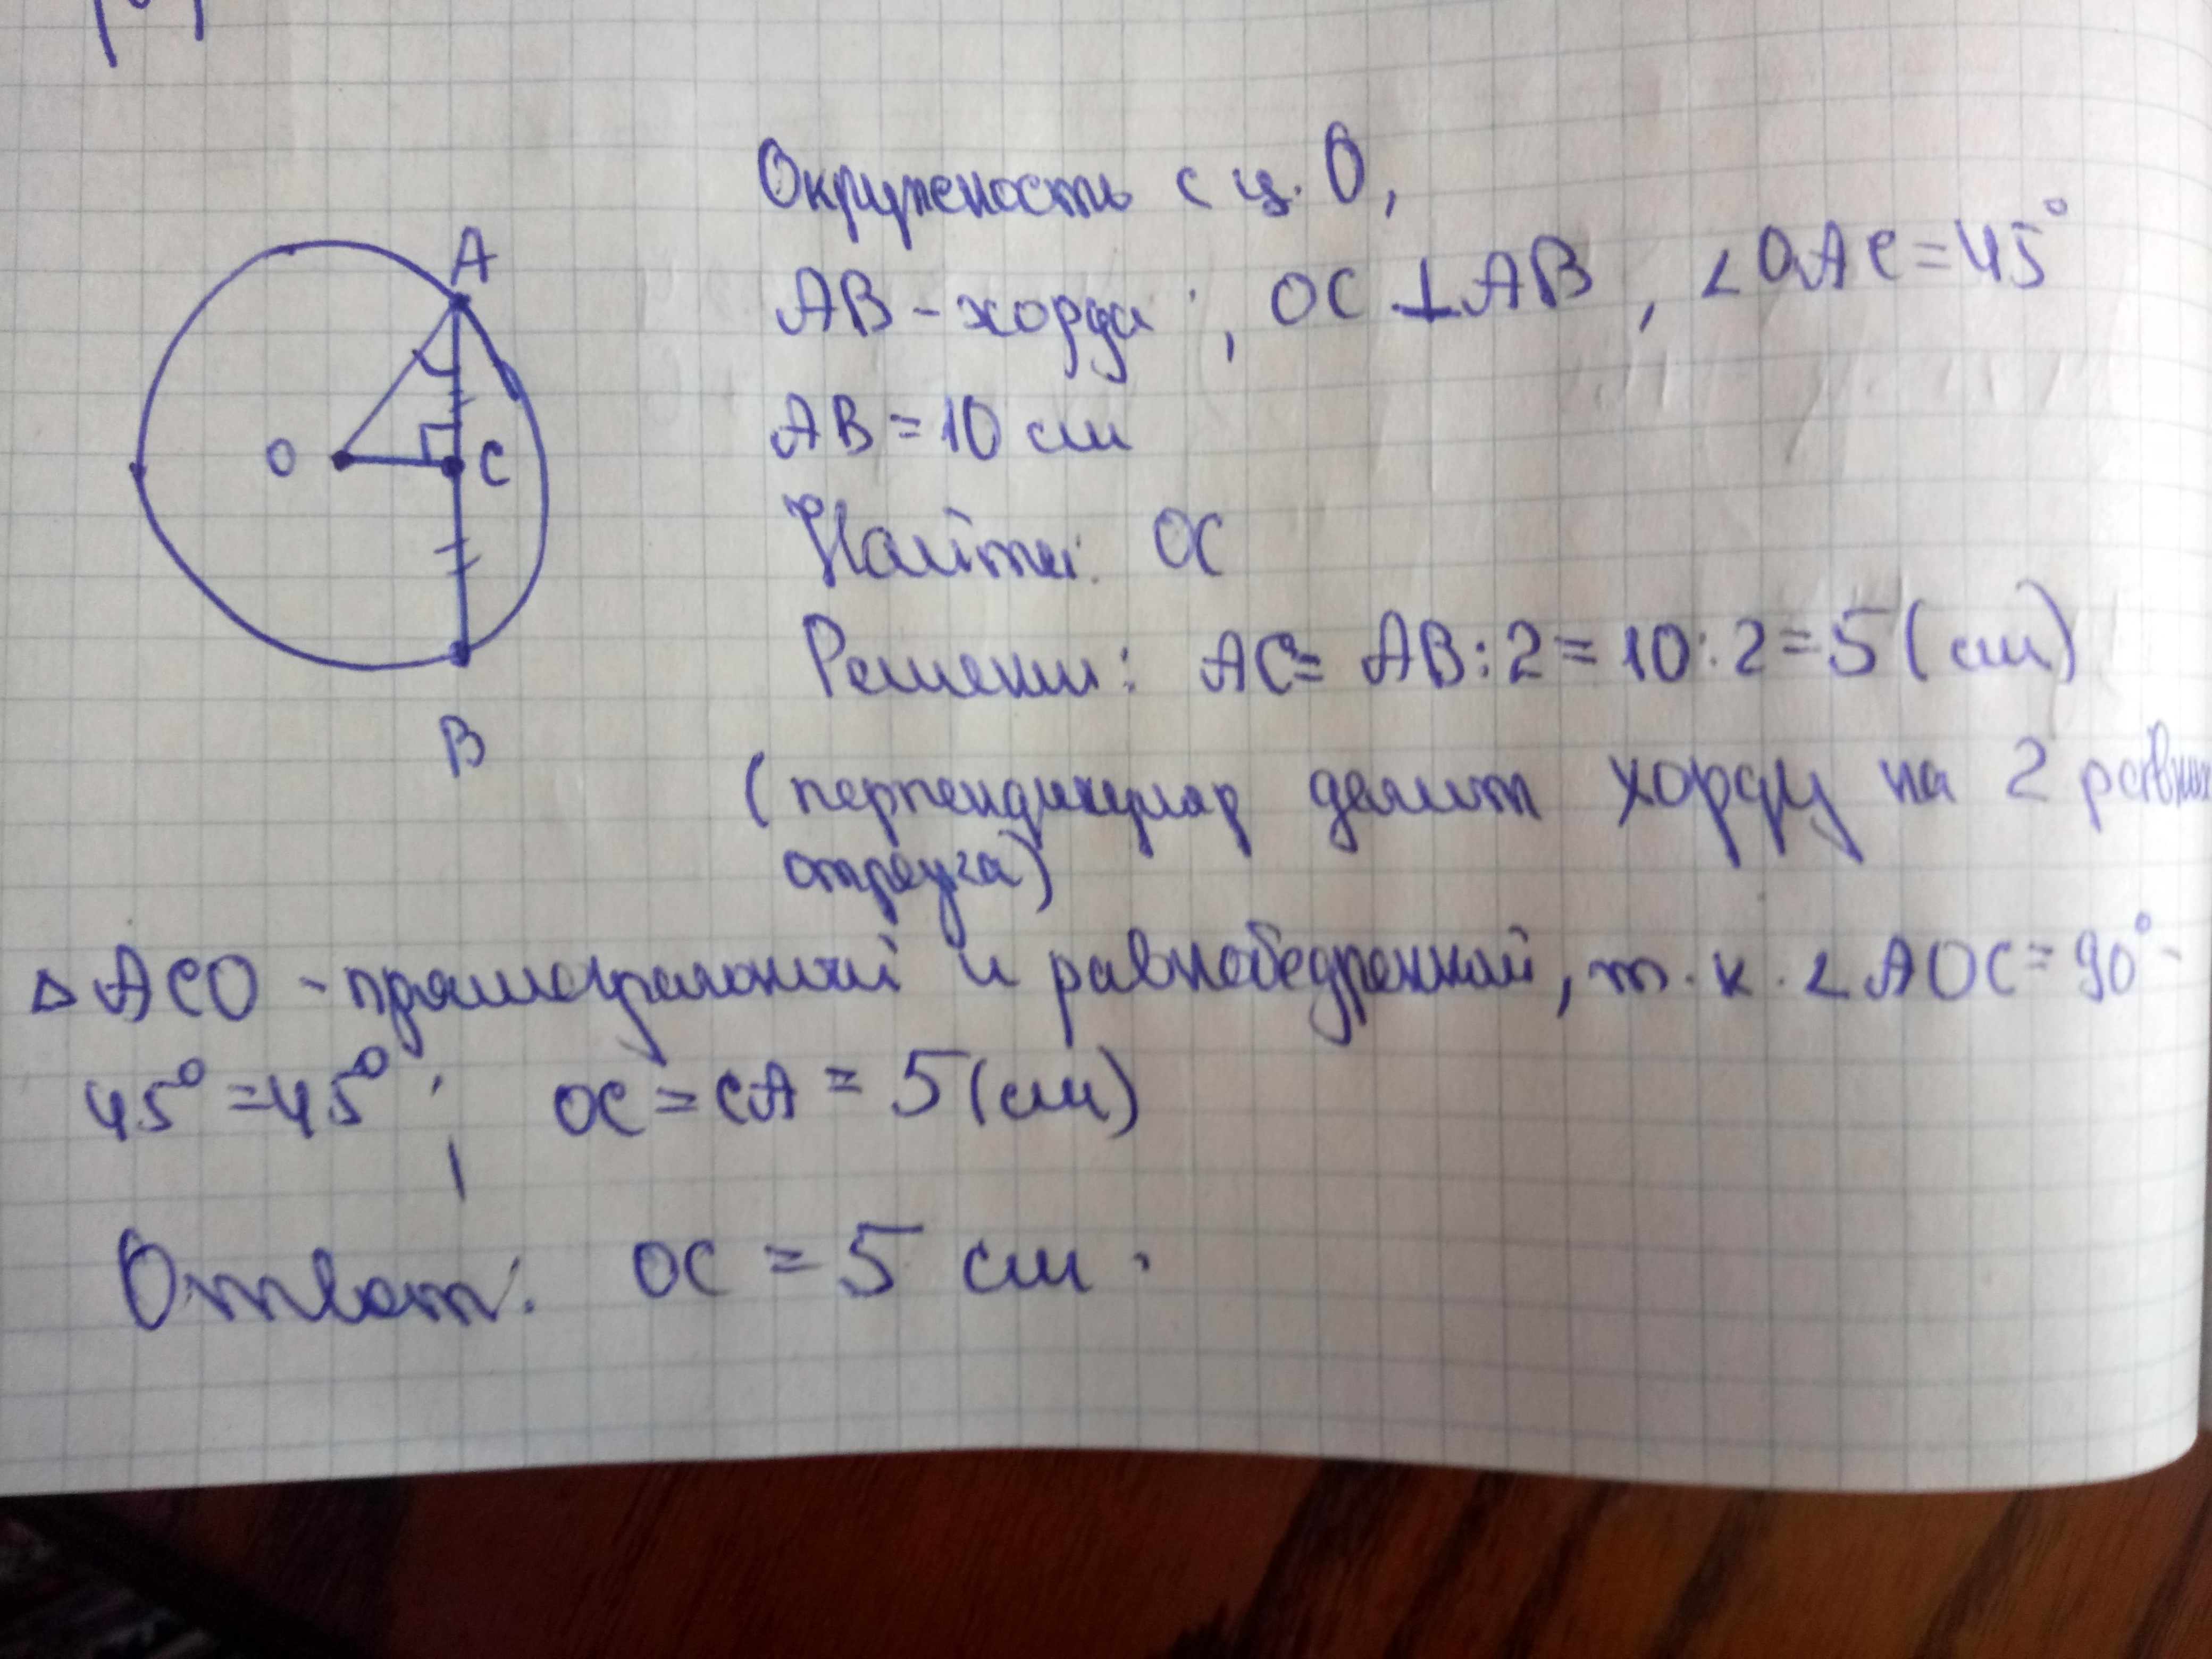 A
O
C
B
Окружность с ц. О,
АВ - хорда, ОС ⊥ АВ, ∠ОАС = 45°
АВ = 10 см
Найти: ОС
Решение: АС = АВ : 2 = 10 : 2 = 5 (см)
(перпендикуляр делит хорду на 2 равных
отрезка)
△ АСО - прямоугольный и равнобедренный, т.к. ∠АОС = 90° -
45° = 45°; ОС = СА = 5 (см)
Ответ: ОС = 5 см.